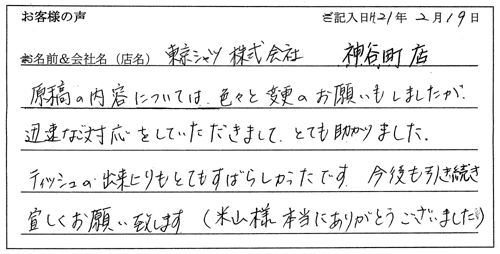 お客様の声 ご記入日 H21年 2月19日
お名前&会社名(店名) 東京シャツ 株式会社 神谷町店
原稿の内容については、色々と変更のお願いもしましたが、
迅速な対応をしていただきまして、とても助かりました。
ティッシュの出来上りもとてもすばらしかったです。今後も引き続き
宜しくお願い致します(米山様本当にありがとうございました!)